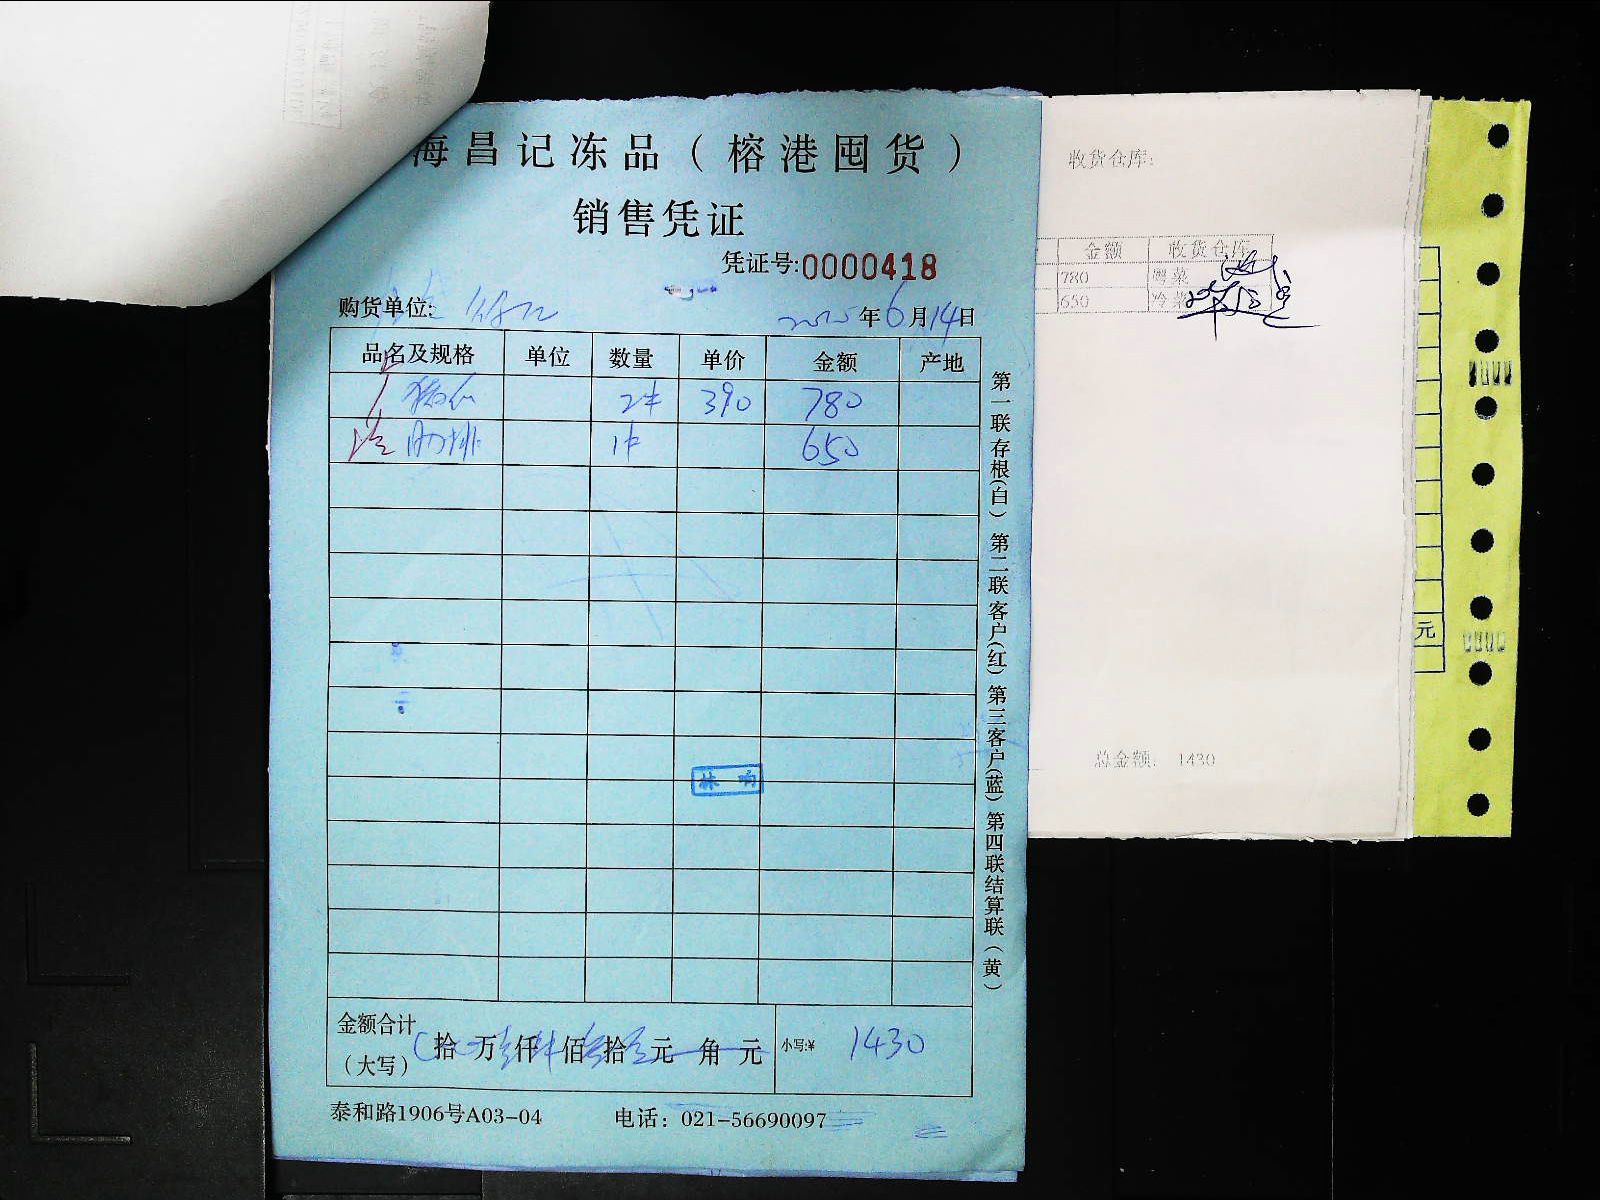 海昌记冻品（榕港囤货）
销售凭证
凭证号:0000418
购货单位:
年6月14日
品名及规格 单位 数量 单价 金额 产地
2件 390 780
肋排 1件 650
金额合计
（大写）
拾 万 仟 佰 拾 元 角 元 小写:¥ 1430
泰和路1906号A03-04 电话：021-56690097
第一联存根(白) 第二联客户(红) 第三客户(蓝) 第四联结算联(黄)
收货仓库:
金额 收货仓库
780 粤菜
650 冷菜
总金额: 1430
元